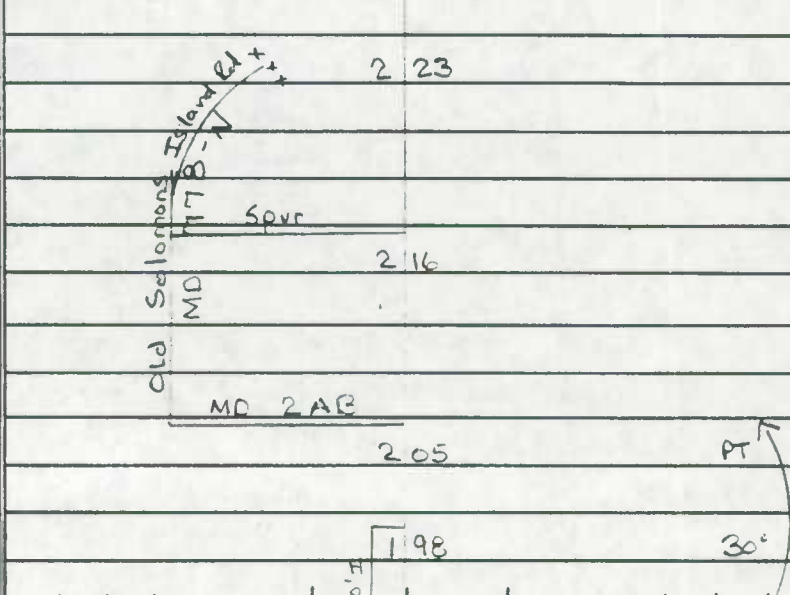 2 23
Old Solomons Island Rd
MD 778-N
Spur
2 16
MD 2AB
2 05
PT
1 98
30°